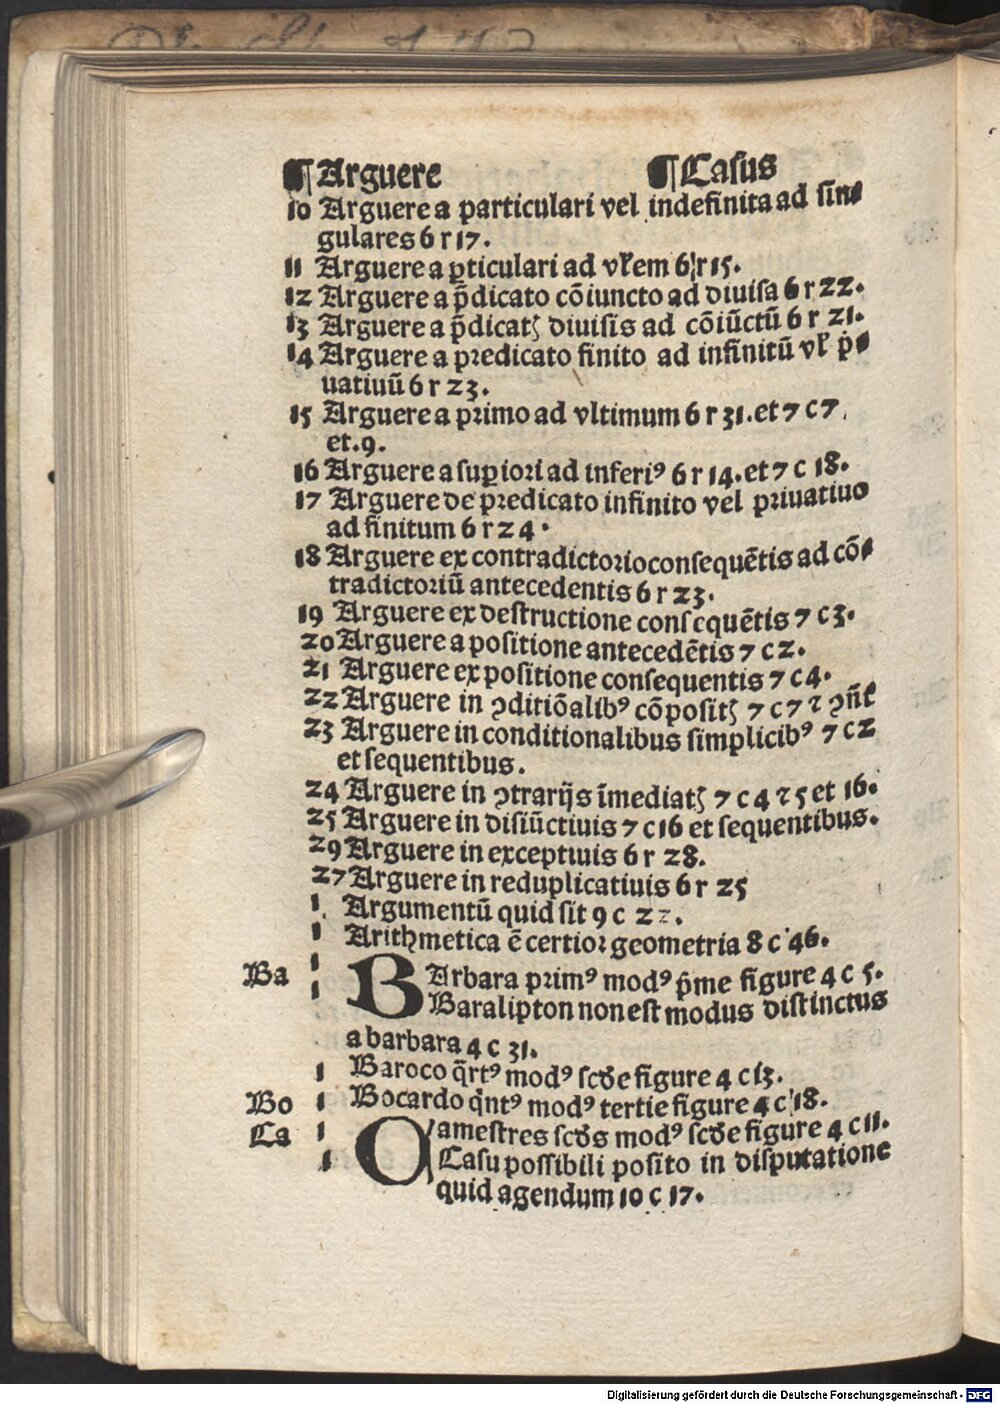 ¶ Arguere ¶ Casus
10 Arguere a particulari vel indefinita ad sin⸗
gulares 6 r 17.
11 Arguere a ꝑticulari ad vƚem 6 r 15.
12 Arguere a p̄dicato cōiuncto ad diuisa 6 r 22.
13 Arguere a p̄dicatꝭ diuisis ad cōiūctū 6 r 21.
14 Arguere a predicato finito ad infinitū vƚ p̄⸗
uatiuū 6 r 23.
15 Arguere a primo ad vltimum 6 r 31. et 7 c 7.
et .9.
16 Arguere a suꝑiori ad inferiꝰ 6 r 14. et 7 c 18.
17 Arguere de predicato infinito vel priuatiuo
ad finitum 6 r 24.
18 Arguere ex contradictorio consequētis ad cō⸗
tradictoriū antecedentis 6 r 23.
19 Arguere ex destructione consequētis 7 c 3.
20 Arguere a positione antecedētis 7 c 2.
21 Arguere ex positione consequentis 7 c 4.
22 Arguere in ꝯditiōalibꝰ cōpositꝭ 7 c 7 ⁊ ꝯn̄ƚ
23 Arguere in conditionalibus simplicibꝰ 7 c 2
et sequentibus.
24 Arguere in ꝯtrarijs īmediatꝭ 7 c 4 ⁊ 5 et 16.
25 Arguere in disiūctiuis 7 c 16 et sequentibus.
29 Arguere in exceptiuis 6 r 28.
27 Arguere in reduplicatiuis 6 r 25
1 Argumentū quid sit 9 c 22.
1 Arithmetica ē certior geometria 8 c 46.
Ba 1 BArbara primꝰ modꝰ p̄me figure 4 c 5.
1 Baralipton non est modus distinctus
a barbara 4 c 31.
1 Baroco q̄rtꝰ modꝰ scd̄e figure 4 c 13.
Bo 1 Bocardo q̄ntꝰ modꝰ tertie figure 4 c 18.
Ca 1 Camestres scd̄s modꝰ scd̄e figure 4 c 11.
1 Casu possibili posito in disputatione
quid agendum 10 c 17.
Digitalisierung gefördert durch die Deutsche Forschungsgemeinschaft - DFG